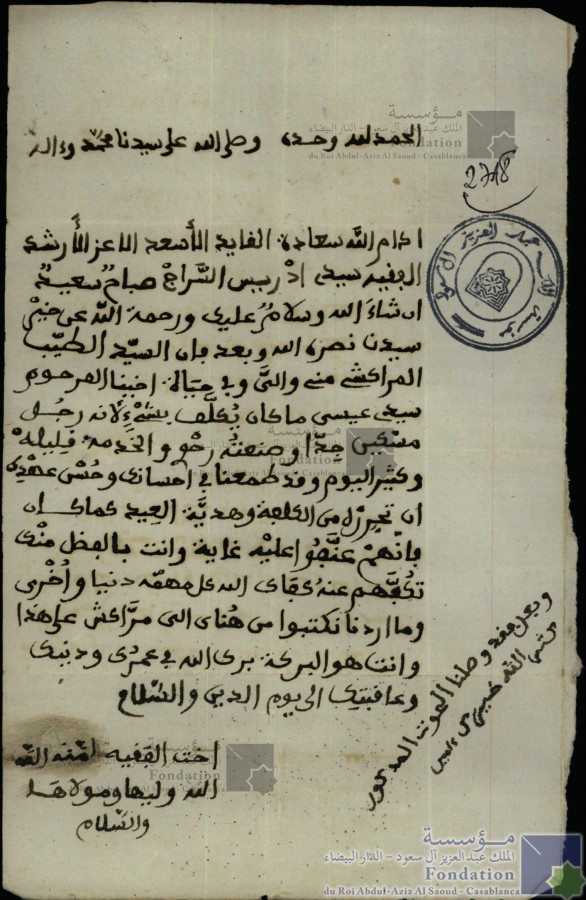 الحمد لله وحده وصلى الله على سيدنا محمد وءاله
2748
ادام الله سعادة القايد الأسعد الاعز الأرشد
الفقيه سيدى ادريس السراج صباح سعيد
ان شاء الله وسلام عليك ورحمة الله عن خير
سيدنا نصره الله وبعد فان السيد الطيب
المراكشي منى والى وفي حياة اخينا المرحوم
سيدى عيسى ما كان يكلف بشىء لانه رجل
مسكين جدا وصنعته رخو والخدمة قليلة
وكثير اليوم وقد طمعنا في احسانك وحسن عهدك
ان تحرره من الكلفة وهدية العيد كما كان
فانهم عنفوا عليه غاية وانت بالفضل منك
تكفهم عنه كفاك الله كل مهمة دنيا وأخرى
وما اردنا نكتبوا من هناك الى مراكش على هذا
وانت هو البركة برك الله في عمرك ودينك
وعاقبتك الى يوم الدين والسلام
اخت الفقيه امنة الله
الله وليها ومولاها
والسلام
وبعد فقد وصلنا الحوت المذكور
مؤسسة
الملك عبد العزيز آل سعود - الدار البيضاء
Fondation
du Roi Abdul-Aziz Al Saoud - Casablanca